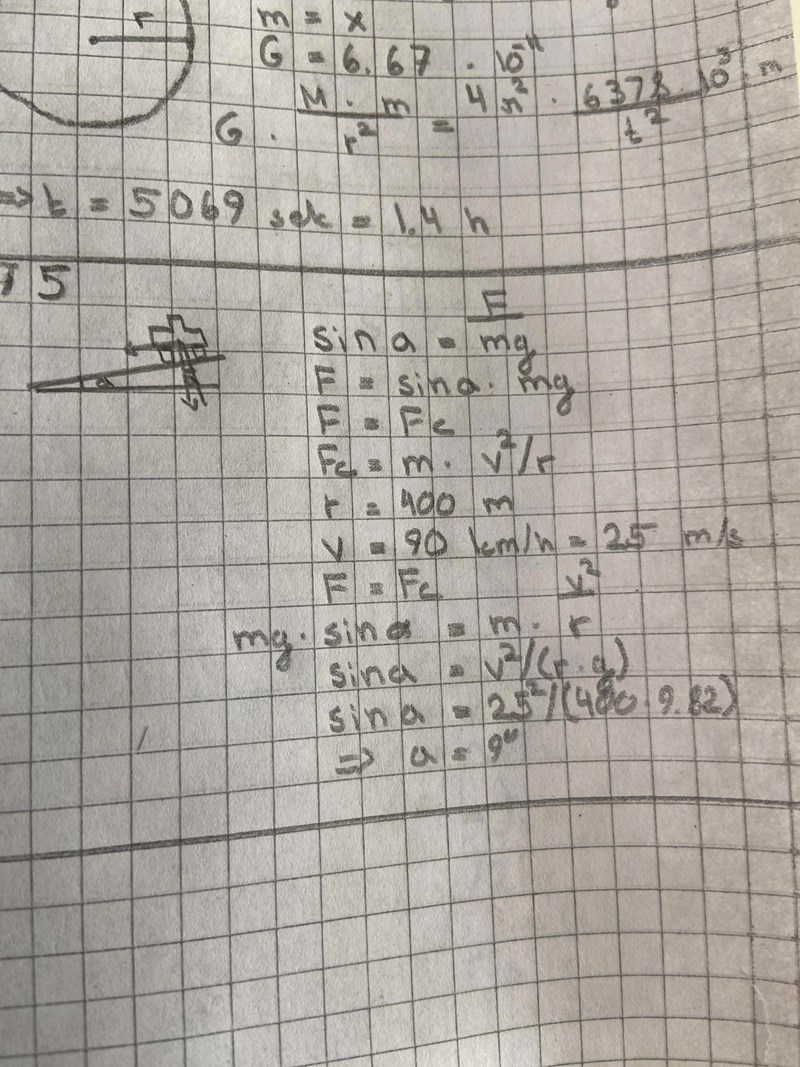 r
m = x
G = 6.67 · 10⁻¹¹
G · M · m / r² = 4π² · 6378 · 10³ m / t²
=> t = 5069 sek = 1.4 h
15
a
sin a = F / mg
F = sin a · mg
F = Fc
Fc = m · v²/r
r = 400 m
v = 90 km/h = 25 m/s
F = Fc
mg · sin a = m · v² / r
sin a = v²/(r·g)
sin a = 25²/(400·9.82)
=> a = 9°